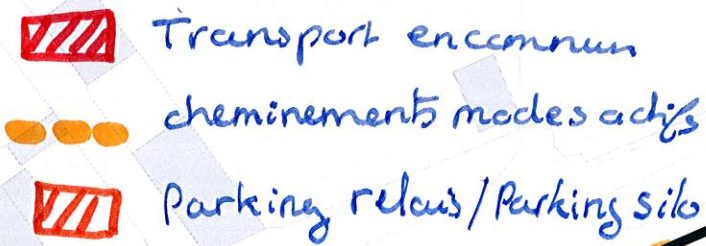 Transport en commun
cheminements modes actifs
Parking relais/Parking silo